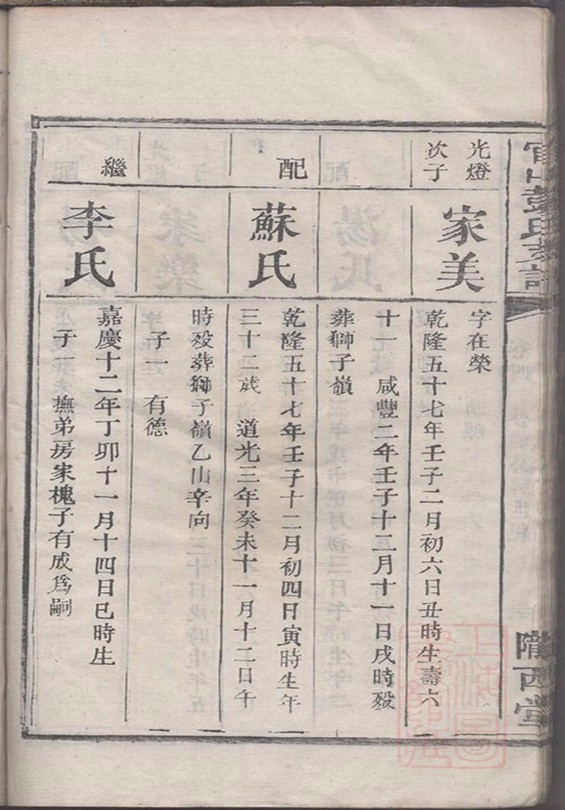 彭氏
隴西堂
光燈
次子
家美
字在榮
乾隆五十七年壬子二月初六日丑時生壽六
十一 咸豐二年壬子十二月十一日戌時歿
葬獅子嶺
配
蘇氏
乾隆五十七年壬子十二月初四日寅時生年
三十二歲 道光三年癸未十一月十二日午
時歿葬獅子嶺乙山辛向
子 有德
繼
李氏
嘉慶十二年丁卯十一月十四日巳時生
子一 撫弟房家槐子有成爲嗣